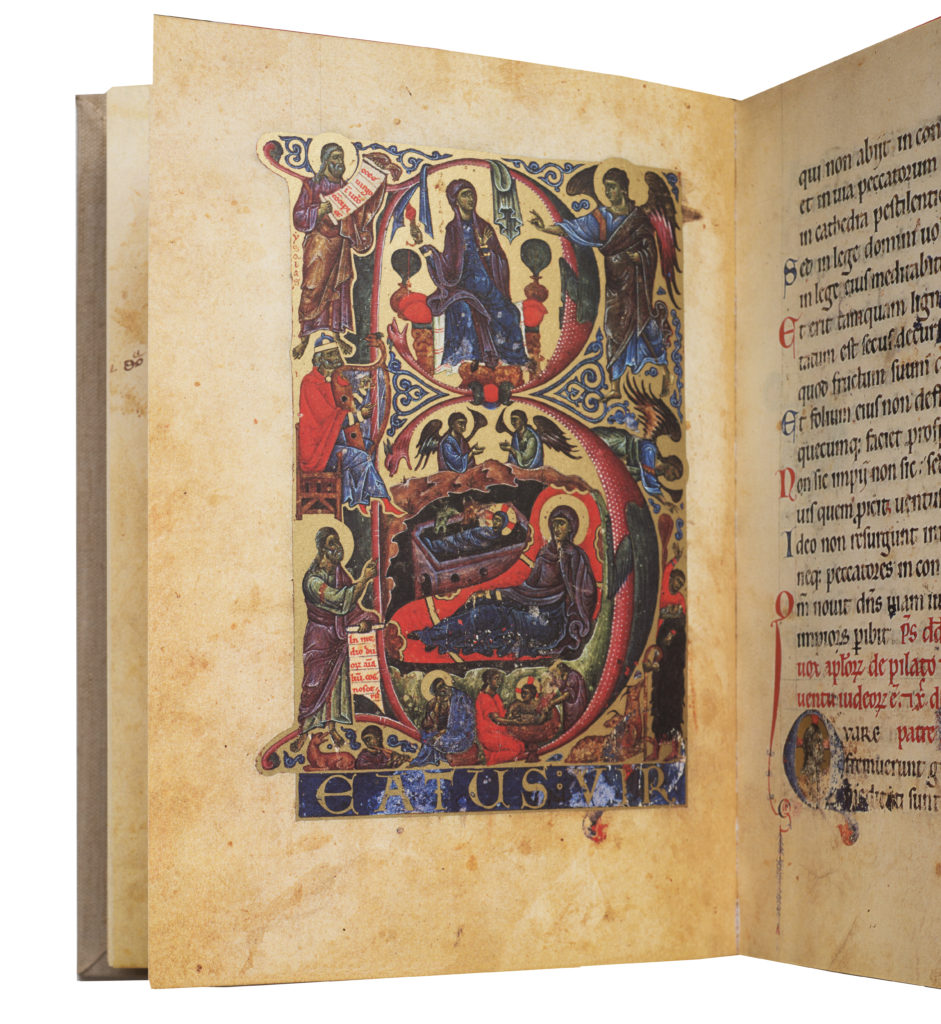 YSAIAS
In me
dio du
EATUS:VIR
qui non abijt in con
et in uia peccatorum
in cathedra pestilentie
Sed in lege domini uo
in lege eius meditabit
Et erit tamquam lign
tatum est secus decurs
quod fructum suum
Et folium eius non defl
quecumq; faciet prosp
Non sic impij non sic: sed
uis quem proicit uentu
Ideo non resurgunt im
neq; peccatores in con
Qm̄ nouit dn̄s uiam iu
impioꝝ pibit. Ps̄
uox aploꝝ de pilato
uentu iudeoꝝ
Qvare patre
fremuerunt g
sunt